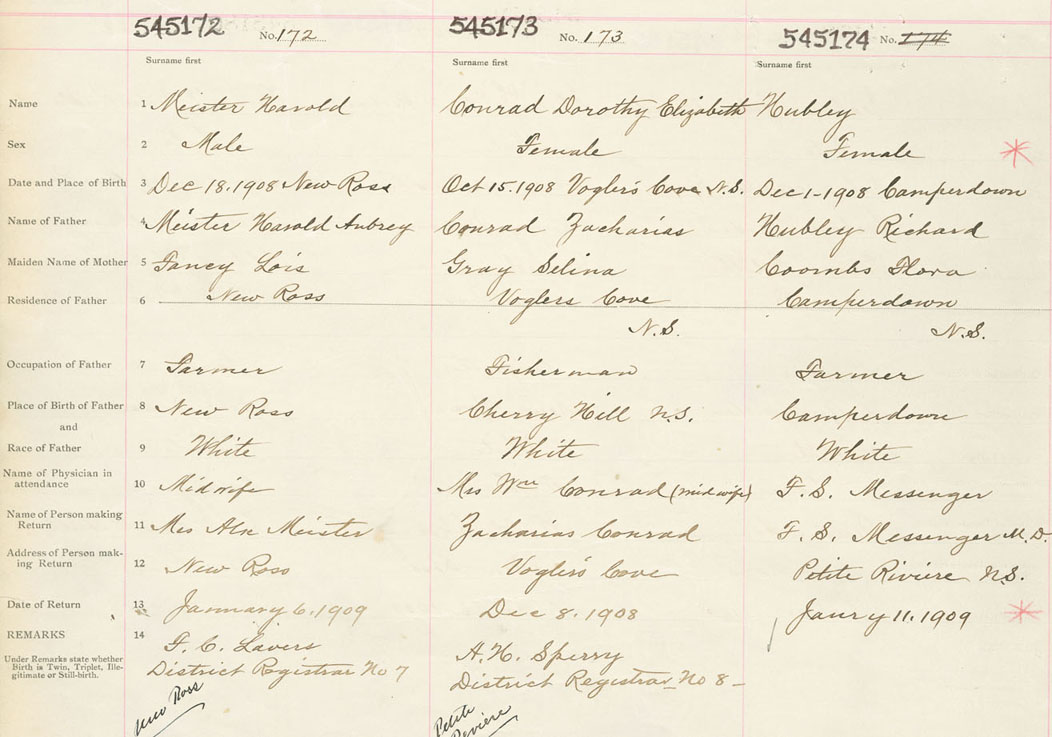 545172 No. 172 545173 No. 173 545174 No. 174
Surname first Surname first Surname first
Name 1 Meister Harold Conrad Dorothy Elizabeth Hubley
Sex 2 Male Female Female
Date and Place of Birth 3 Dec 18. 1908 New Ross Oct 15. 1908 Vogler's Cove N.S. Dec 1 - 1908 Camperdown
Name of Father 4 Meister Harold Aubrey Conrad Zacharias Hubley Richard
Maiden Name of Mother 5 Fancy Lois Gray Selina Coombs Flora
Residence of Father 6 New Ross Voglers Cove Camperdown
N.S. N.S.
Occupation of Father 7 Farmer Fisherman Farmer
Place of Birth of Father 8 New Ross Cherry Hill N.S. Camperdown
and
Race of Father 9 White White White
Name of Physician in
attendance 10 Midwife Mrs Wm Conrad (midwife) F. S. Messenger
Name of Person making
Return 11 Mrs Meister Zacharias Conrad F. S. Messenger M.D.
Address of Person mak-
ing Return 12 New Ross Vogler's Cove Petite Riviere N.S.
Date of Return 13 January 6. 1909 Dec 8. 1908 Janry 11. 1909
REMARKS 14 F. C. Lavers A. H. Sperry
Under Remarks state whether
Birth is Twin, Triplet, Ille-
gitimate or Still-birth.
District Registrar No 7 District Registrar No 8 -
New Ross Petite
Riviere